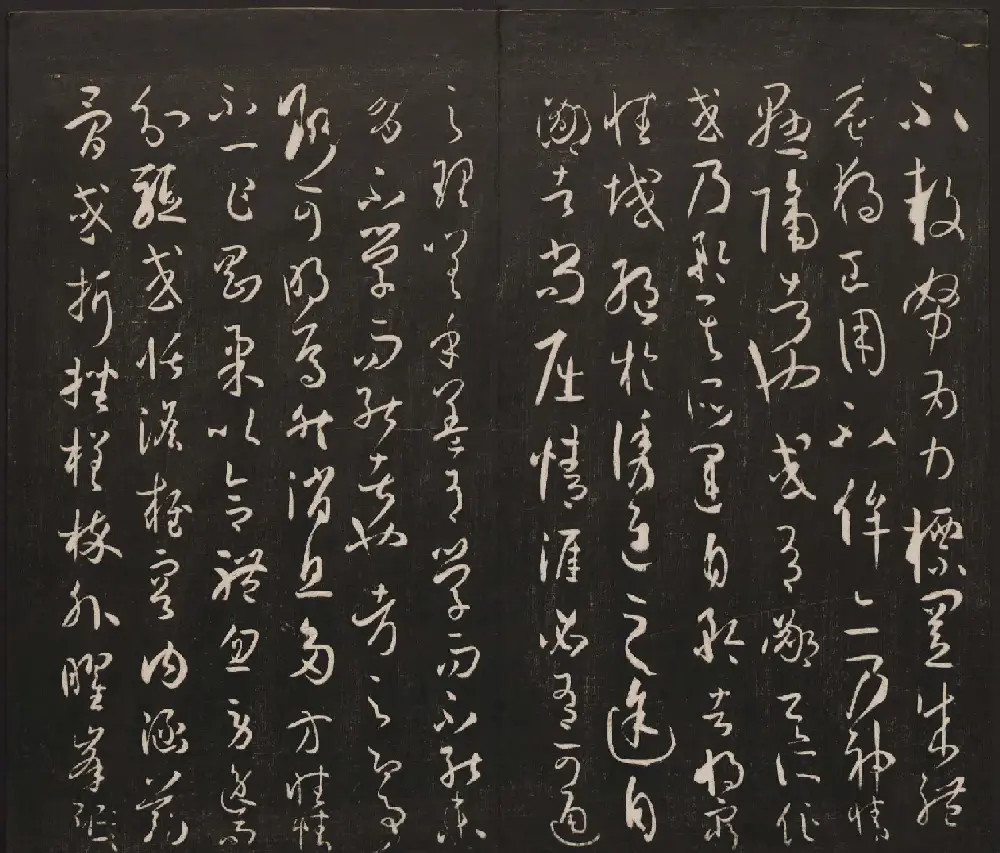 不鼓努為力標置成體
豈獨工用不侔亦乃神情
懸隔者也或有鄙其所作
或乃矜其所運自矜者將窮
性域絕於誘進之途自
鄙者尚屈情涯必有可通
之理嗟乎蓋有學而不能未
有不學而能者也考之即事
斷可明焉然消息多方性情
不一乍剛柔以合體忽勞逸而
分驅或恬澹雍容內涵筋
骨或折挫槎枿外曜峯芒